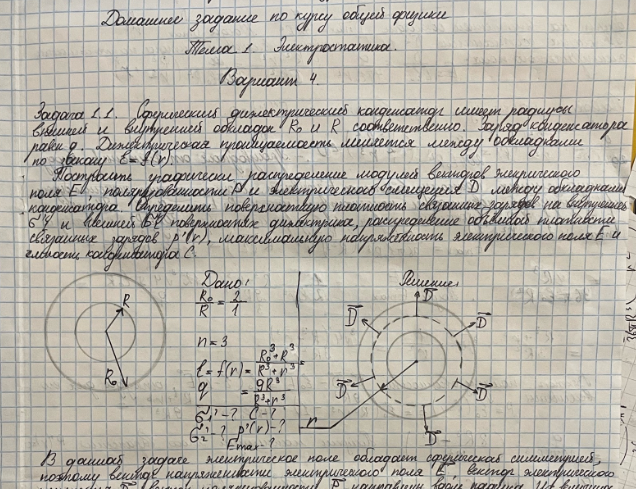 Домашнее задание по курсу общей физики
Тема 1. Электростатика.
Вариант 4.
Задача 1.1. Сферический диэлектрический конденсатор имеет радиусы
внешней и внутренней обкладок R₀ и R соответственно. Заряд конденсатора
равен q. Диэлектрическая проницаемость меняется между обкладками
по закону ε=f(r).
Построить графически распределение модулей векторов электрического
поля E, поляризованности P и электрического смещения D между обкладками
конденсатора. Определить поверхностную плотность связанных зарядов на внутренней
σ₁' и внешней σ₂' поверхностях диэлектрика, распределение объёмной плотности
связанных зарядов ρ'(r), максимальную напряжённость электрического поля E и
ёмкость конденсатора C.
Дано:
Решение:
R
R₀
R₀/R = 2/1
n=3
ε=f(r)= (R₀³+R³)/(R³+r³) =
= 9R³/(R³+r³)
q
σ₁'-? C-?
σ₂'-? ρ'(r)-?
Emax-?
r
D
D
D
D
D
D
D
В данной задаче электрическое поле обладает сферической симметрией,
поэтому вектор напряжённости электрического поля E, вектор электрического